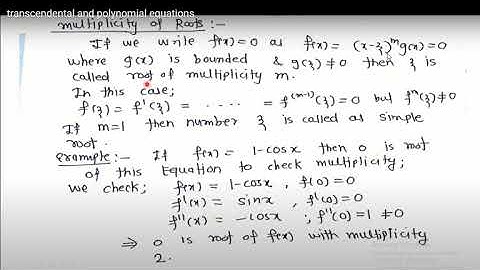 transcendental and polynomial equations
multiplicity of Roots :-
If we write f(x)=0 as f(x) = (x-ξ)^m g(x)=0
where g(x) is bounded & g(ξ)≠0 then ξ is
called root of multiplicity m.
In this case;
f(ξ) = f'(ξ) = - - - - - = f^(m-1)(ξ)=0 but f^m(ξ)≠0
If m=1 then number ξ is called as simple
root.
Example:- If f(x) = 1-cosx then 0 is root
of this Equation to check multiplicity;
we check; f(x) = 1-cosx , f(0)=0
f'(x) = sinx, f'(0)=0
f''(x) = -cosx ; f''(0)=1 ≠0
⇒ 0 is root of f(x) with multiplicity
2.